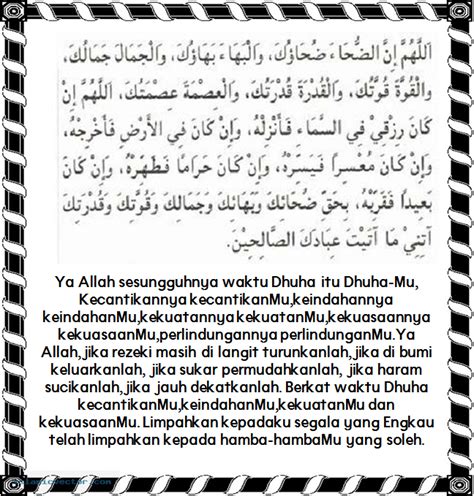 اَللّٰهُمَّ إِنَّ الضُّحَاءَ ضُحَاؤُكَ، وَالْبَهَاءَ بَهَاؤُكَ، وَالْجَمَالَ جَمَالُكَ،
وَالْقُوَّةَ قُوَّتُكَ، وَالْقُدْرَةَ قُدْرَتُكَ، وَالْعِصْمَةَ عِصْمَتُكَ، اَللّٰهُمَّ إِنْ
كَانَ رِزْقِيْ فِي السَّمَاءِ فَأَنْزِلْهُ، وَإِنْ كَانَ فِي الْأَرْضِ فَأَخْرِجْهُ،
وَإِنْ كَانَ مُعْسِرًا فَيَسِّرْهُ، وَإِنْ كَانَ حَرَامًا فَطَهِّرْهُ، وَإِنْ كَانَ
بَعِيدًا فَقَرِّبْهُ، بِحَقِّ ضُحَائِكَ وَبَهَائِكَ وَجَمَالِكَ وَقُوَّتِكَ وَقُدْرَتِكَ
آتِنِيْ مَا آتَيْتَ عِبَادَكَ الصَّالِحِيْنَ.
Ya Allah sesungguhnya waktu Dhuha itu Dhuha-Mu,
Kecantikannya kecantikanMu,keindahannya
keindahanMu,kekuatannya kekuatanMu,kekuasaannya
kekuasaanMu,perlindungannya perlindunganMu.Ya
Allah,jika rezeki masih di langit turunkanlah,jika di bumi
keluarkanlah, jika sukar permudahkanlah, jika haram
sucikanlah,jika jauh dekatkanlah. Berkat waktu Dhuha
kecantikanMu,keindahanMu,kekuatanMu dan
kekuasaanMu. Limpahkan kepadaku segala yang Engkau
telah limpahkan kepada hamba-hambaMu yang soleh.